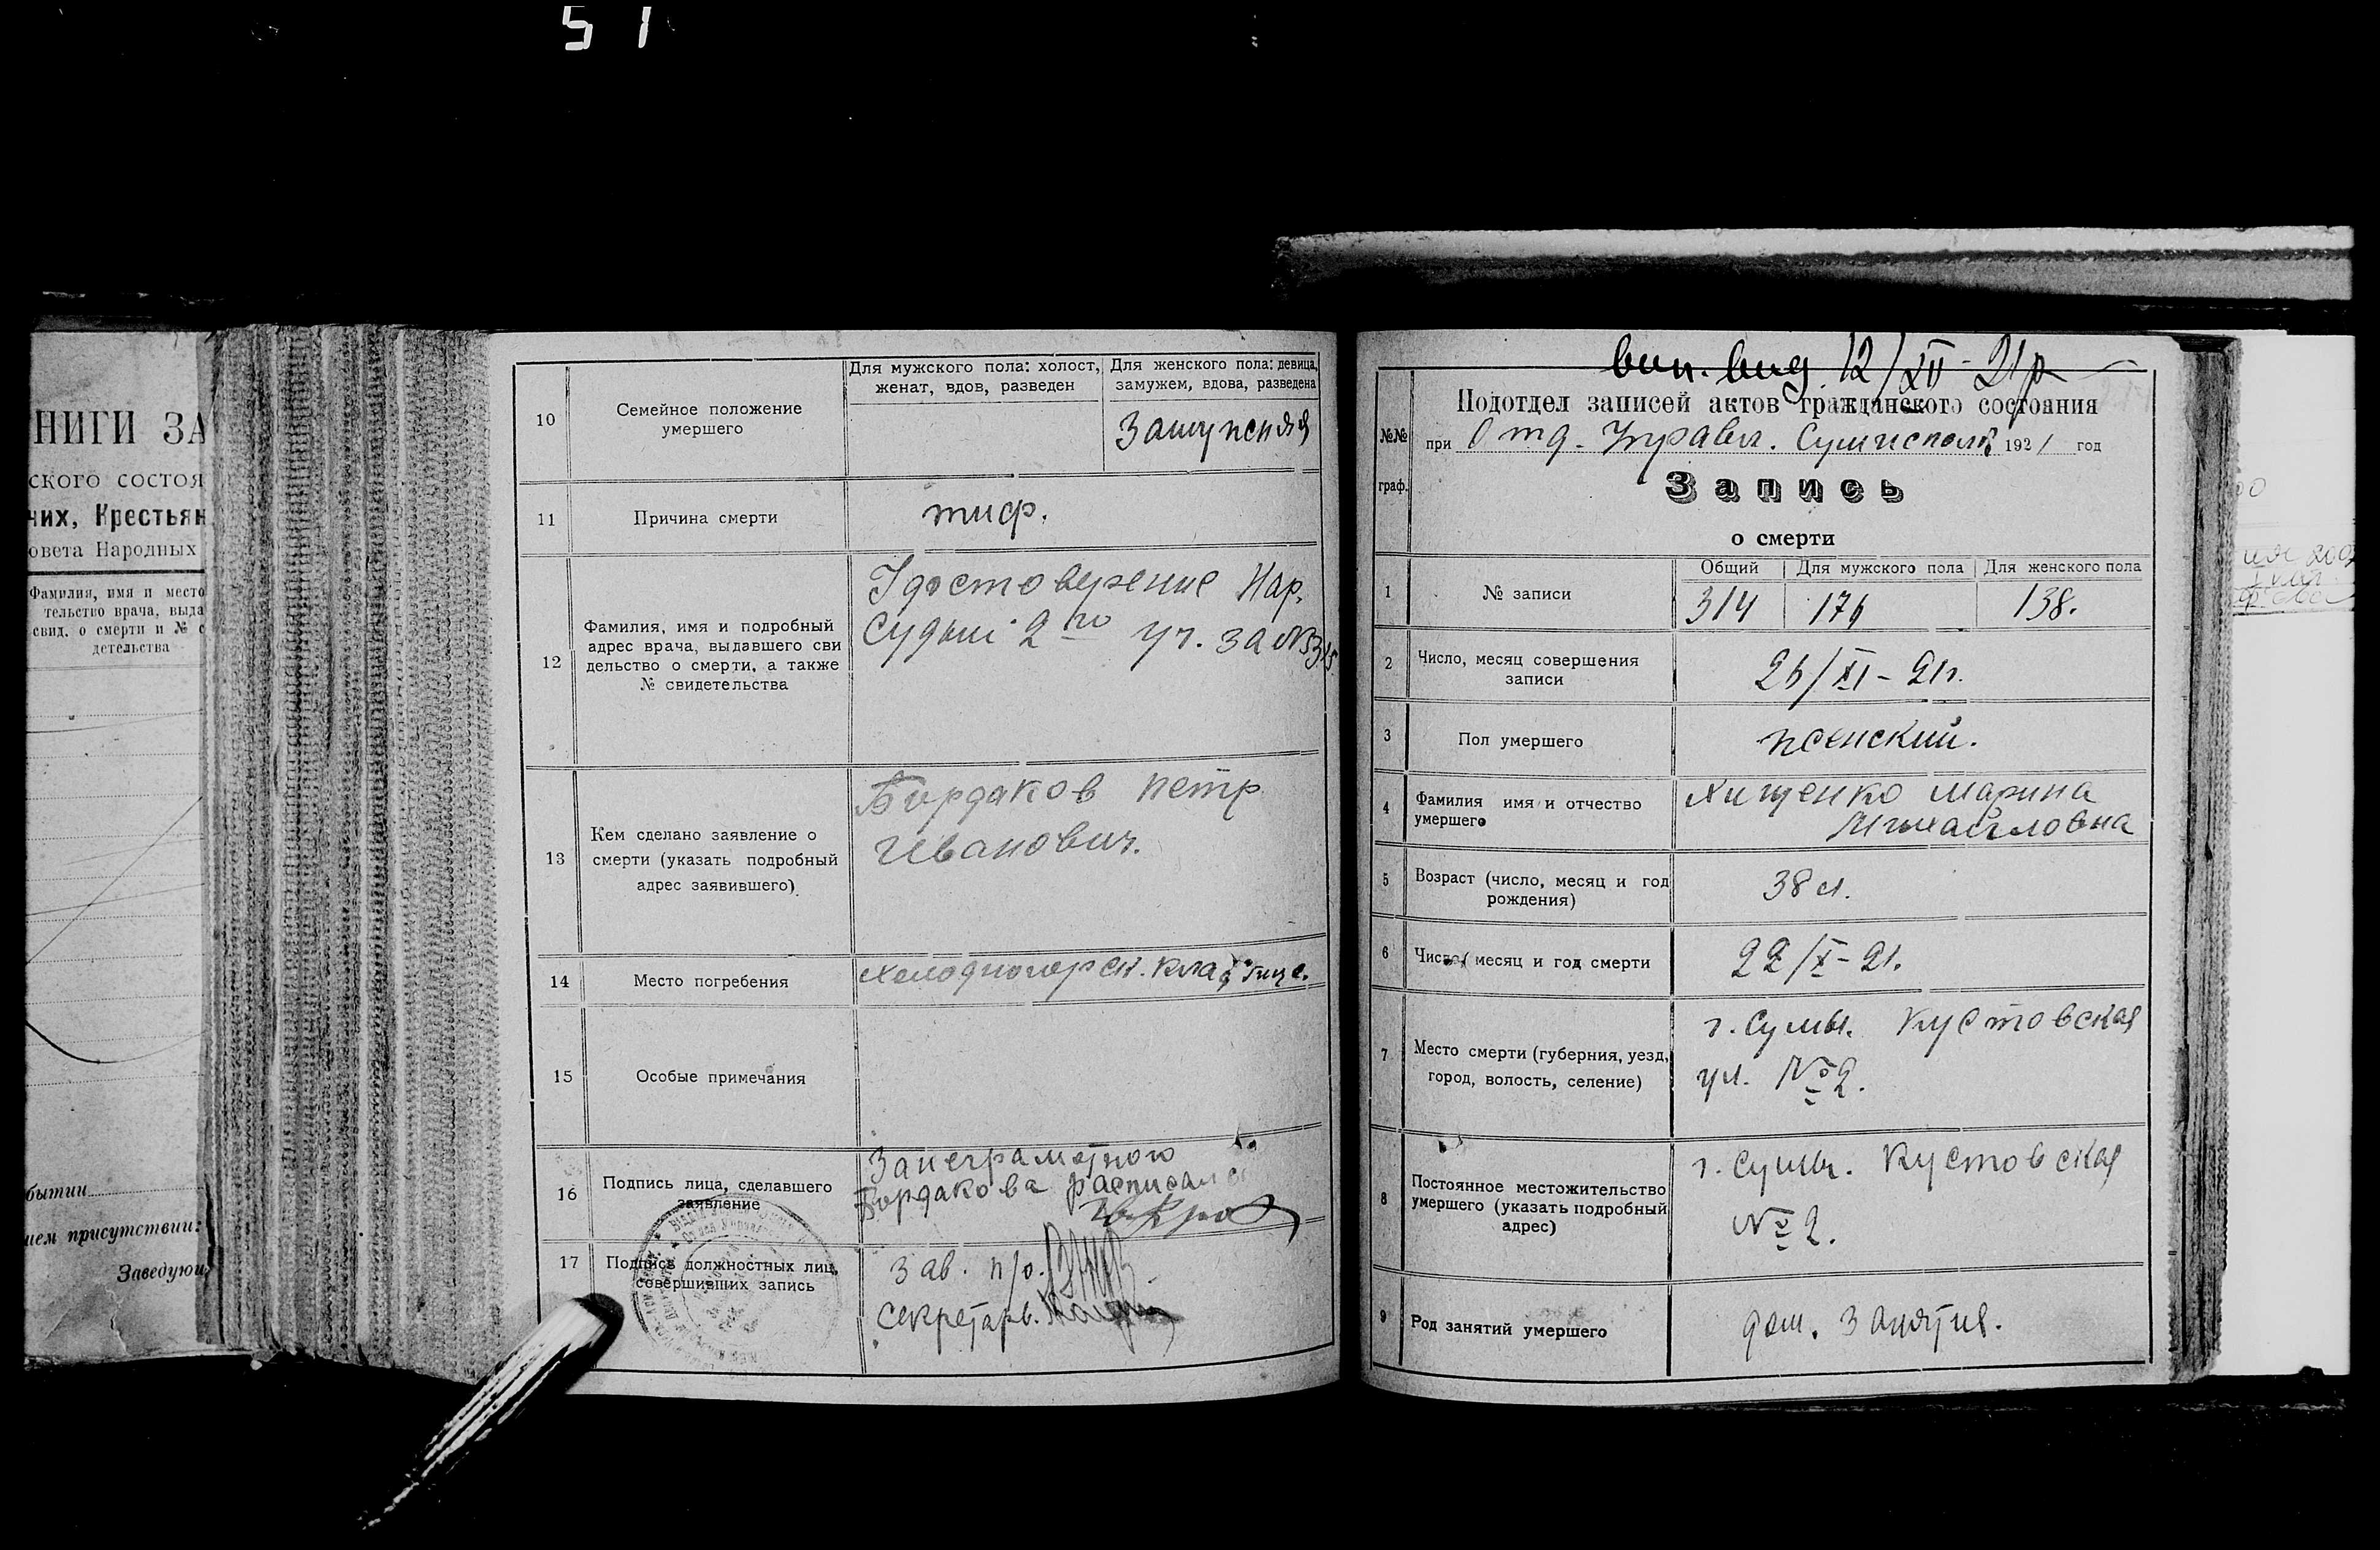 51
НИГИ ЗА
ского состоя
чих, Крестьян
овета Народных
Фамилия, имя и место
тельство врача, выда
свид. о смерти и № с
детельства
бытии
ием присутствии:
Заведующ
10
Семейное положение
умершего
Для мужского пола: холост,
женат, вдов, разведен
Для женского пола: девица,
замужем, вдова, разведена
Замужняя
11
Причина смерти
тиф.
12
Фамилия, имя и подробный
адрес врача, выдавшего сви
дельство о смерти, а также
№ свидетельства
Удостоверение Нар.
Судьи 2го уч. за №
13
Кем сделано заявление о
смерти (указать подробный
адрес заявившего).
Бордаков Петр
Иванович.
14
Место погребения
Холодногорск. кладбище.
15
Особые примечания
16
Подпись лица, сделавшего
заявление
За неграмотного
Бордакова расписался
17
Подпись должностных лиц,
совершивших запись
Зав. п/о.
Секретарь.
вид. 12/XII-21р
№№
граф.
Подотдел записей актов гражданского состояния
при Отд. Управл. Сумисполк 1921 год
Запись
о смерти
1
№ записи
Общий
Для мужского пола
Для женского пола
314
176
138.
2
Число, месяц совершения
записи
26/XI-21г.
3
Пол умершего
женский.
4
Фамилия имя и отчество
умершего
Хищенко Марина
Михайловна
5
Возраст (число, месяц и год
рождения)
38 л.
6
Число, месяц и год смерти
22/X-21.
7
Место смерти (губерния, уезд,
город, волость, селение)
г. Сумы. Кустовская
ул. № 2.
8
Постоянное местожительство
умершего (указать подробный
адрес)
г. Сумы. Кустовская
№ 2.
9
Род занятий умершего
дом. занятия.